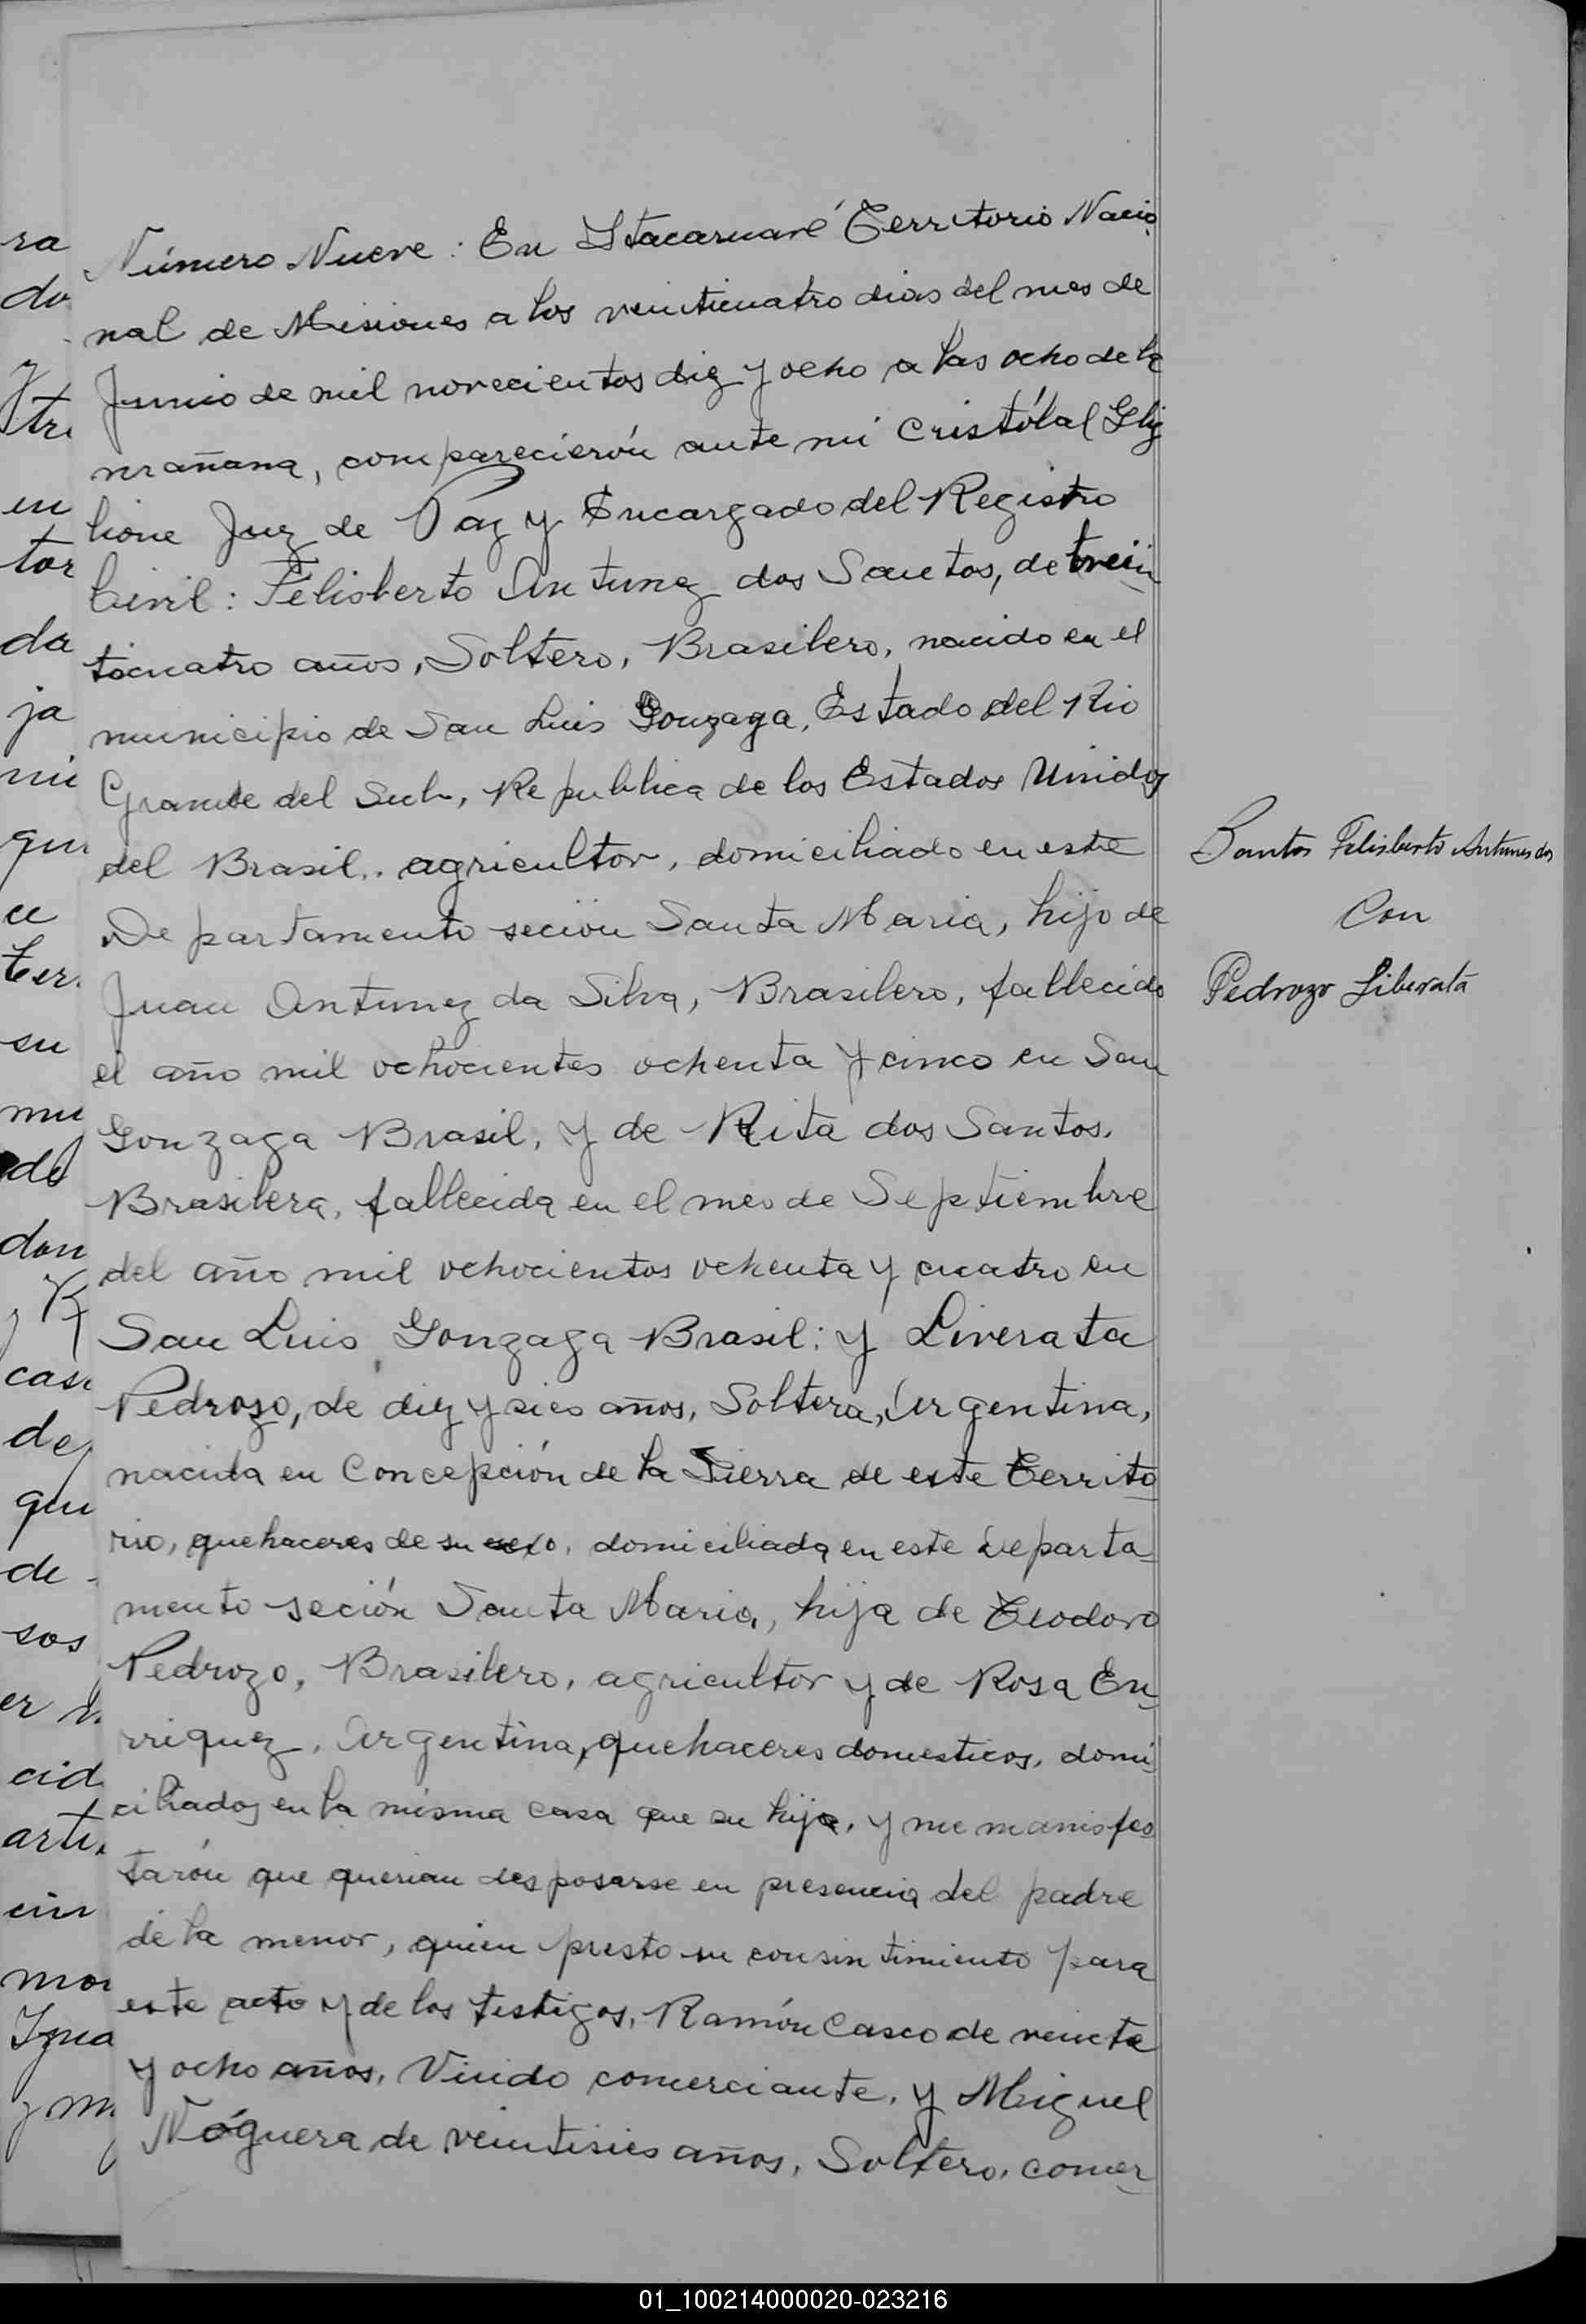 Número Nueve: En Itacaruaré Territorio Nacio
nal de Misiones a los veinticuatro dias del mes de
Junio de mil novecientos diez y ocho a las ocho de la
mañana, comparecierón ante mi Cristóbal Ghig
lione Juez de Paz y Encargado del Registro
Civil: Felisberto Antunez dos Santos, de trein
ticuatro años, Soltero, Brasilero, nacido en el
municipio de San Luis Gonzaga, Estado del Rio
Grande del Sul, Republica de los Estados Unidos
del Brasil, agricultor, domiciliado en este
Departamento seción Santa Maria, hijo de
Juan Antunez da Silva, Brasilero, fallecido
el año mil ochocientos ochenta y cinco en San
Gonzaga Brasil, y de Rita dos Santos,
Brasilera, fallecida en el mes de Septiembre
del año mil ochocientos ochenta y cuatro en
San Luis Gonzaga Brasil: y Liverata
Pedrozo, de diez y sies años, Soltera, Argentina,
nacida en Concepción de la Sierra de este Territo
rio, quehaceres de su sexo, domiciliada en este Departa
mento seción Santa Maria, hija de Teodoro
Pedrozo, Brasilero, agricultor y de Rosa En
rriquez, Argentina, quehaceres domesticos, domi
ciliados en la misma casa que su hija, y me manisfes
tarón que querian desposarse en presencia del padre
de la menor, quien presto su consintimiento para
este acto y de los testigos, Ramón Casco de veinte
y ocho años, Viudo comerciante, y Miguel
Nóguera de veintisies años, Soltero, comer
Santos Felisberto Antunes dos
Con
Pedrozo Liberata
ra
do
y
tr
en
tor
da
ja
mi
qu
ce
ter
su
mu
de
don
y
cas
de
que
de
sos
er
cid
arti
cin
mor
Igna
y m
01_100214000020-023216